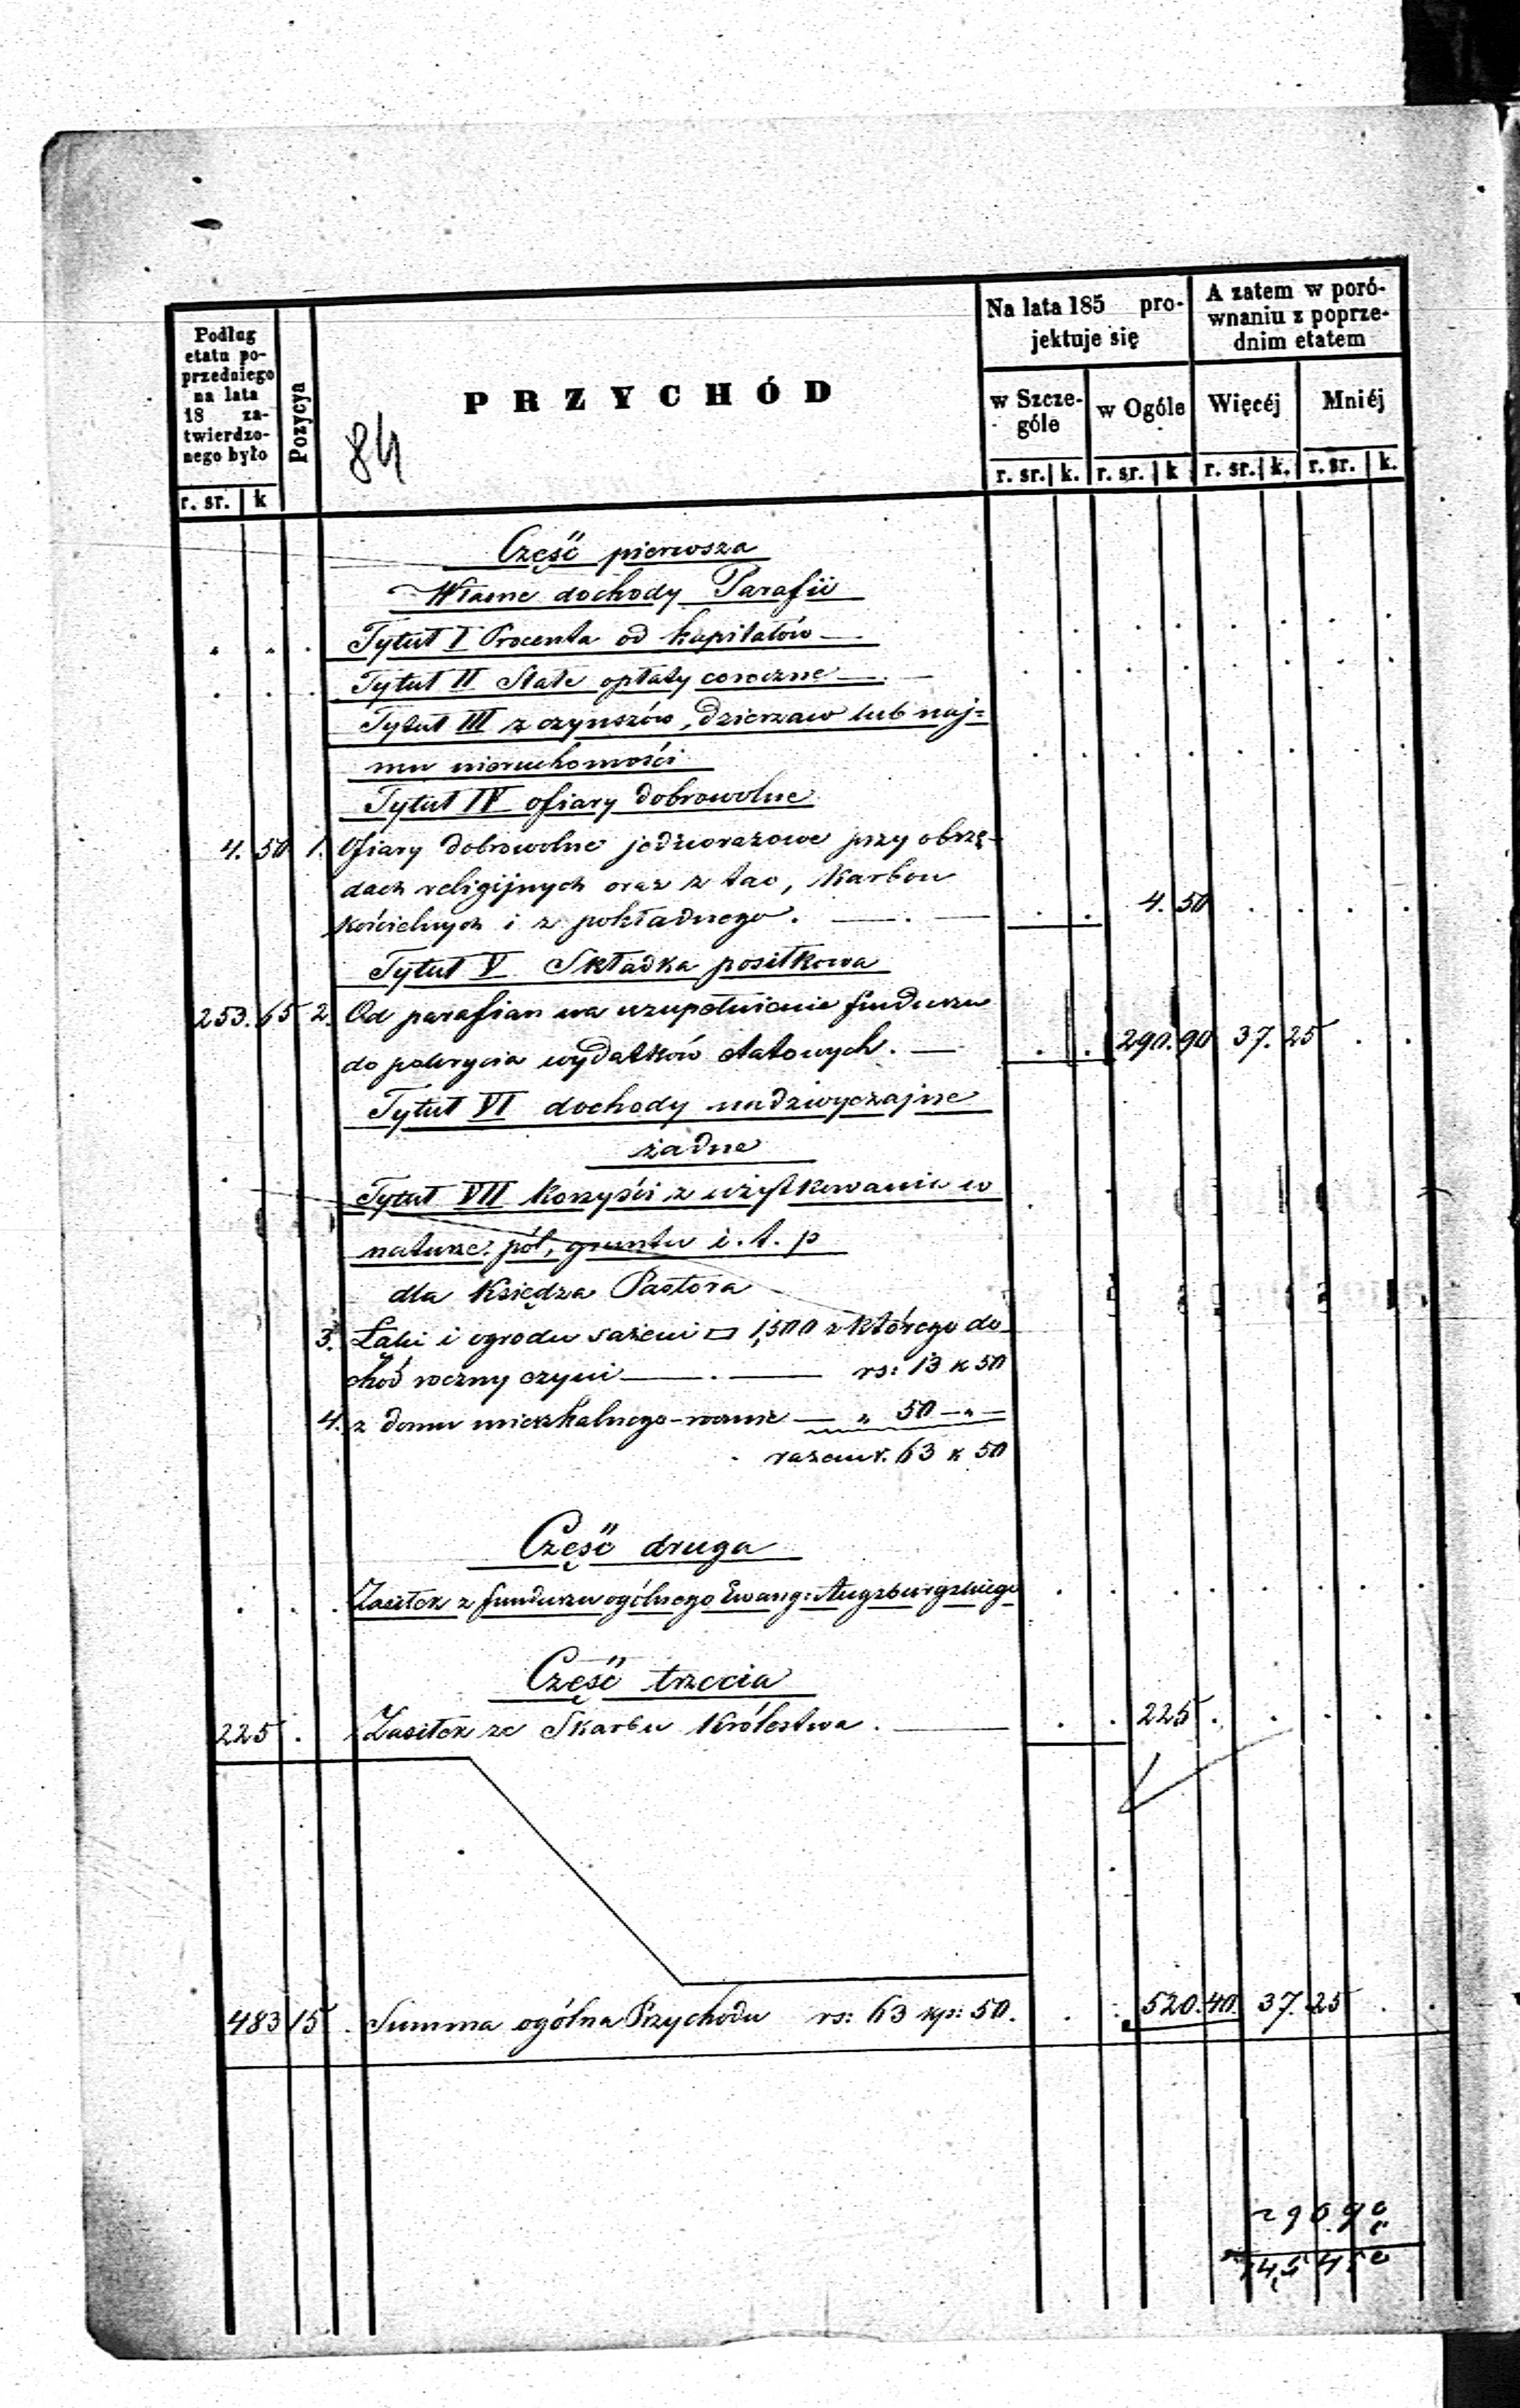 Podług
etatu po-
przedniego
na lata
18 za-
twierdzo-
nego było
r. sr. k
Pozycya
PRZYCHÓD
84
Na lata 185 pro-
jektuje się
w Szcze-
góle
w Ogóle
r. sr. k. r. sr. k
A zatem w poró-
wnaniu z poprze-
dnim etatem
Więcéj Mniéj
r. sr. k. r. sr. k.
Część pierwsza
Własne dochody Parafii
Tytuł I Procenta od kapitałów —
Tytuł II Stałe opłaty coroczne —
Tytuł III z czynszów, dzierzaw lub naj=
mu nieruchomości
Tytuł IV ofiary dobrowolne
4. 50 1. Ofiary dobrowolne jednorazowe przy obrzę-
dach religijnych oraz z tac, Karbon
Kościelnych i z pokładnego. — . — 4. 50
Tytuł V Składka posiłkowa
253. 65 2. Od parafian na uzupełnienie funduszu
do pokrycia wydatków etatowych. — 290. 90 37. 25
Tytuł VI dochody nadzwyczajne
żadne
Tytuł VII Korzyści z użytkowania w
naturze. pól, gruntu i. t. p
dla Księdza Pastora
3. Łąki i ogrodu sażeni □ 1,500 z którego do-
chód roczny czyni — . — rs: 13 k 50
4. z domu mieszkalnego - rocznie — „ 50 - „ -
razem r. 63 k 50
Część druga
Zasiłek z funduszu ogólnego Ewang: Augsburgskiego
Część trzecia
225 . Zasiłek ze Skarbu Królestwa . — 225 .
483 15 . Summa ogólna Przychodu rs: 63 kp: 50. 520. 40. 37. 25
290.90